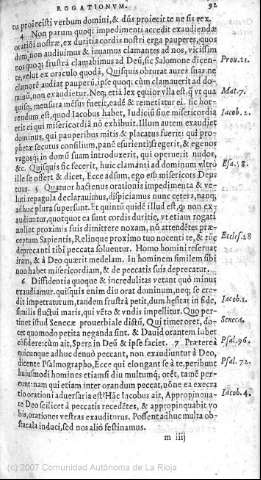 ROGATIONVM. 92
tu proiecisti verbum domini, & dñs proiecit te ne sis rex.
4 Non parum quoq; impedimenti accedit exaudiendæ
orationi nostræ, ex duritia cordis nostri erga pauperes, quos
dum, non audiuimus & iuuamus clamantes ad nos, vicissim
nos quoq; frustra clamabimus ad Deũ, sic Salomone dicen-
te, velut ex oraculo quodã, Quisquis obturat aures suas ne
clamorẽ audiat pauperũ, ipse quoq; cùm clamauerit ad do-
minũ, non exaudietur. Neq; etiã lex equior vlla est q̃ vt qua
quisq; mensura mẽsus fuerit, eadẽ & remetiatur ei. sic hor-
rendum est, quod Iacobus habet, Iudiciũ sine misericordia
erit ei qui misericordiã nõ exhibuit. Illum autem exaudiet
dominus, qui pauperibus mitis & placatus fuerit: qui pro-
phetæ secutus consilium, panẽ esurienti fregerit, & egenos
vagosq; in domũ suam introduxerit, qui operuerit nudos,
&c. Quisquis sic fecerit, huic clamanti ad dominum vltro
ille se offert & dicet, Ecce adsum, ego em̃ misericors Deus
tuus. 5 Quatuor hactenus orationis impedimenta & ve-
luti repagula declarauimus, dispiciamus nunc cętera, nanq;
adhuc plura supersunt. Et quintũ quidẽ illud est, q̃ non ex-
audiuntur, quotquot ea sunt cordis duritie, vt etiam rogati
nolint proximis suis dimittere noxam, nõ attendẽtes præ-
ceptum Sapientis, Relinque proximo tuo nocenti te, & tũc
deprecanti tibi peccata soluentur. Homo homini reseruat
iram, & à Deo quærit medelam. In hominem similem sibi
non habet misericordiam, & de peccatis suis deprecatur.
6 Diffidentia quoque & incredulitas vetant quò minus
exaudiamur. quisquis enim diu orat dominum, neq; se cre-
dit impetraturum, tandem frustrà petit, dum hęsitat in fide,
similis fluctui maris, qui vẽto & vndis impellitur. Quo per-
tinet istud Senecæ prouerbiale dictũ, Qui timet oret, do-
cet quomodo petita neganda sint. & Dauid orantem iubet
esse dicere: cũm ait, Spera in Deũ & ipse faciet. 7 Prætereà
quicunque adhuc denuò peccant, non exaudiuntur à Deo,
dicente Psalmographo, Ecce qui elongant se à te. peribunt
huiusmodi homines etiamsi diu multumq; orẽt, tamẽ per-
eunt: nam qui etiam inter orandum peccat, põne ea execra
tio orationi aduersaria est? Hâc Iacobus ait, Appropinqua-
te Deo scilicet à peccatis recedẽtes, & appropinquabit vo
bis, orationes vestras exauditurus. Possent adhuc multa ob-
stacula induci, sed nos alió festinamus.
m iiij
Prou. 21.
Mat. 7.
Iacob. 2.
Esa. 58.
Eccles. 28
Iacob. 1.
Seneca.
Psal. 36.
Psal. 72.
Iacob. 4.
(c) 2007 Comunidad Autónoma de La Rioja